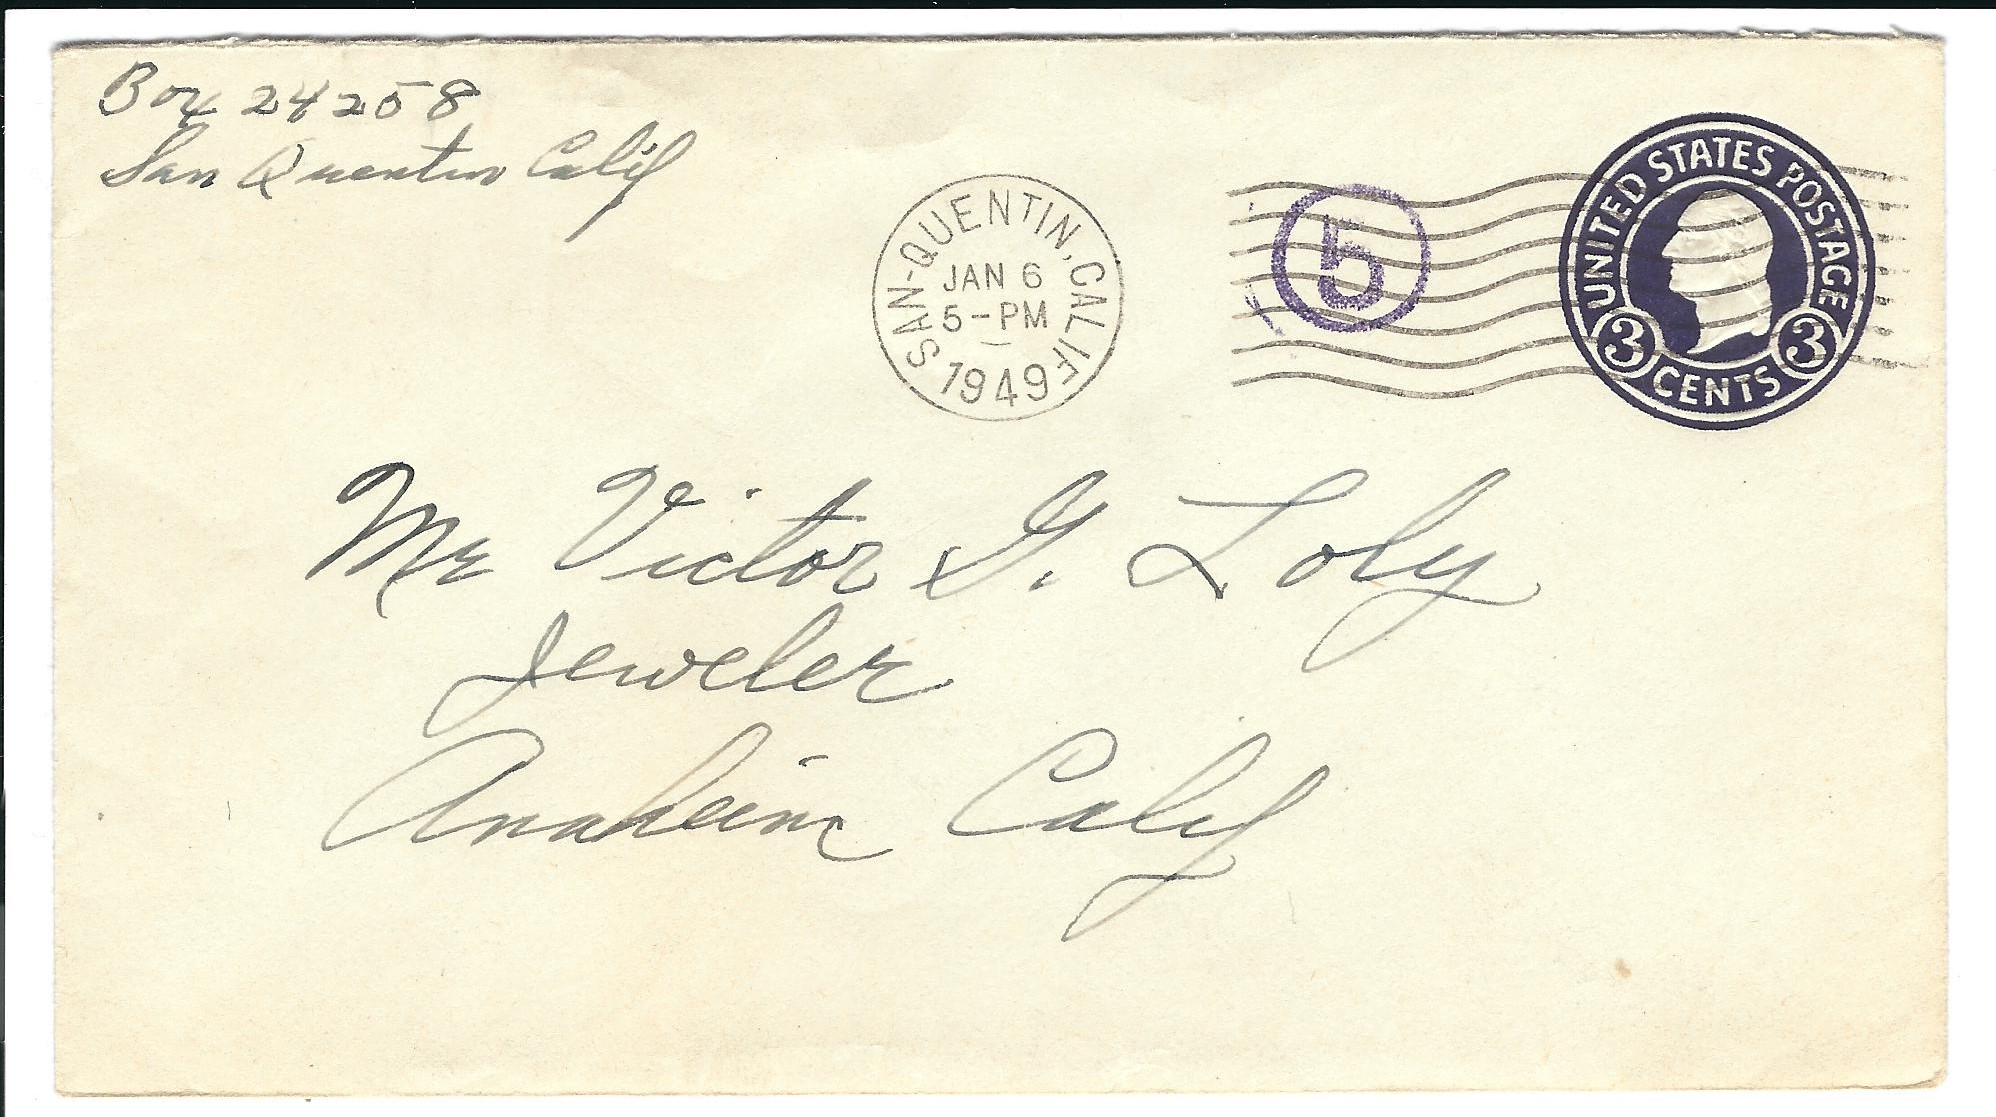 Box 24258
San Quentin Calif
SAN-QUENTIN, CALIF.
JAN 6
5-PM
1949
5
UNITED STATES POSTAGE
3 3
CENTS
Mr Victor G. Loly
Jeweler
Anaheim Calif